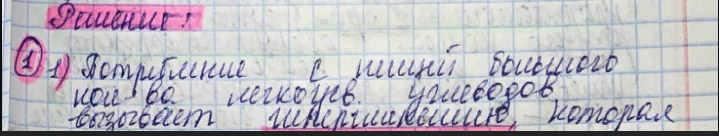 Решение:
1 1) Потребление с пищей большого
кол-ва легкоусв. углеводов
вызывает гипергликемию, которая